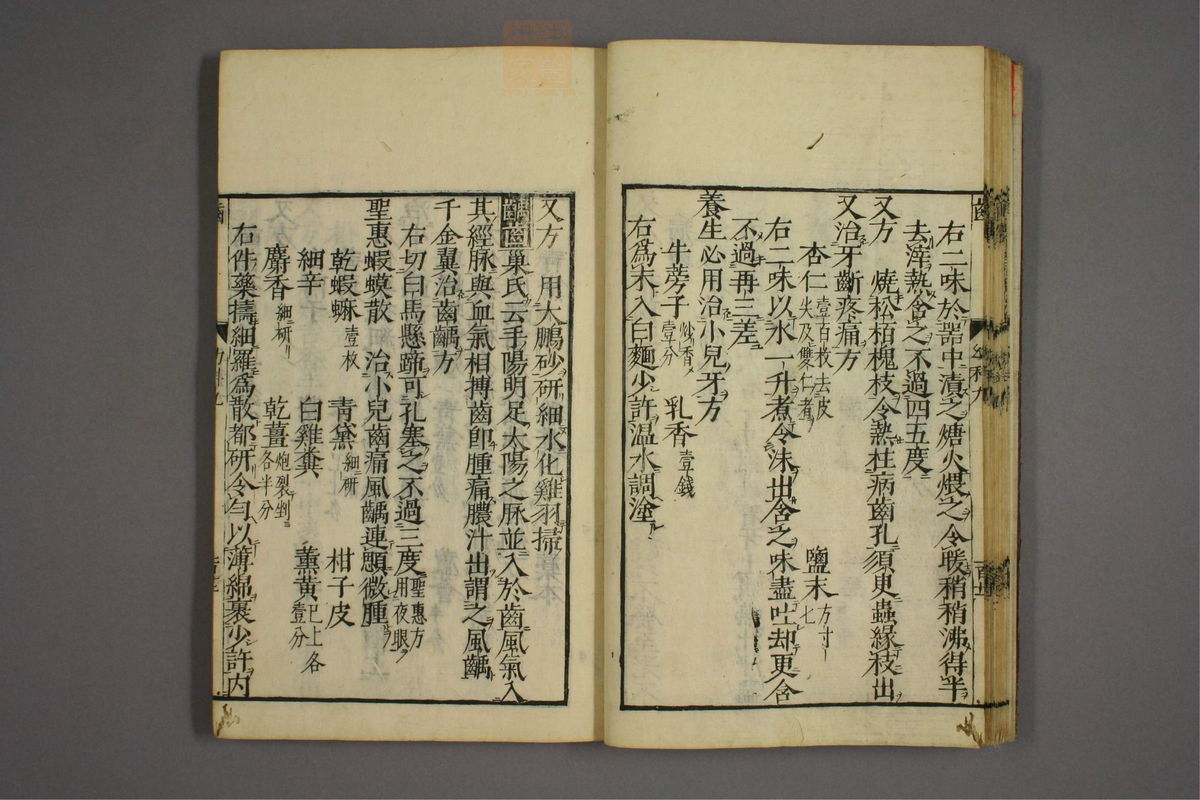 右二味於器中漬之煻火煨之令暖稍稍沸得半
去滓熱含之不過四五度
又方　燒松栢槐枝令熱柱病齒孔須臾蟲緣枝出
又治牙齒斷疼痛方
杏仁壹百枚去皮尖及雙仁者　鹽末方寸匕
右二味以水一升煮令沫出含之味盡吐却更含
不過再三差
養生必用治小兒牙方
牛蒡子炒香壹分　乳香壹錢
右爲末入白麵少許温水調塗
又方　用大鵬砂研細水化雞羽掃
齲齒巢氏云手陽明足太陽之脉並入於齒風氣入
其經脉與血氣相搏齒卽腫痛膿汁出謂之風齲
千金翼治齒齲方
右切白馬懸蹄可孔塞之不過三度聖惠方用夜眼
聖惠蝦蟆散　治小兒齒痛風齲連顋微腫
乾蝦蟆壹枚　青黛細研　柑子皮
細辛　白雞糞　薰黄已上各壹分
麝香細研　乾薑炮裂剉各半分
右件藥擣細羅爲散都研令勻以薄綿裹少許内